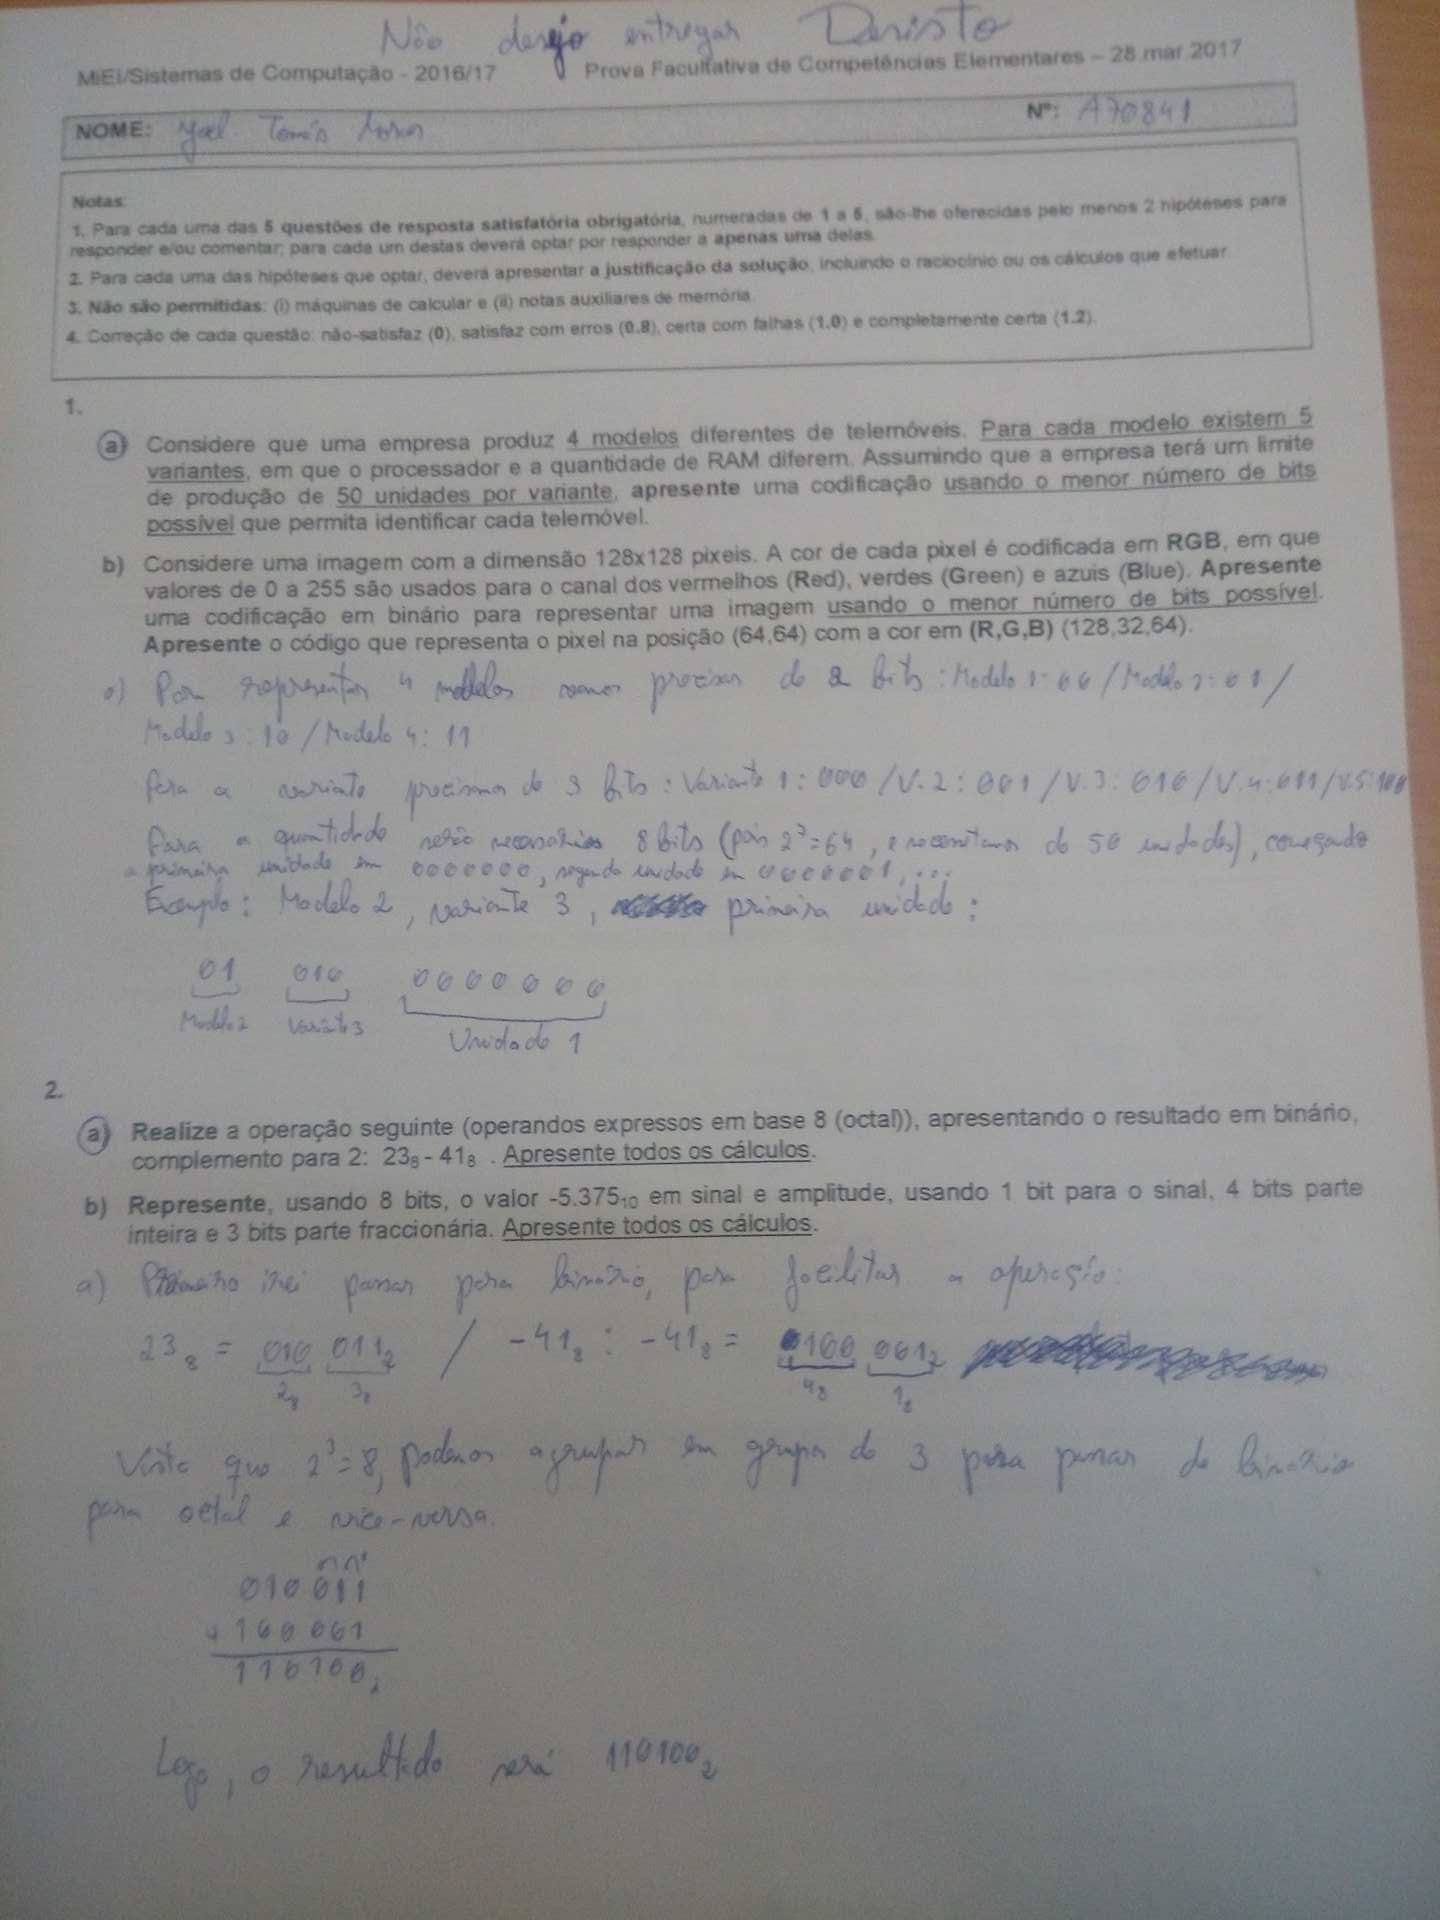 Não desejo entregar Desisto
MiEI/Sistemas de Computação - 2016/17 Prova Facultativa de Competências Elementares – 28.mar.2017
NOME: Yoel Tomás Nº: A70841
Notas:
1. Para cada uma das 5 questões de resposta satisfatória obrigatória, numeradas de 1 a 5, são-lhe oferecidas pelo menos 2 hipóteses para
responder e/ou comentar; para cada um destas deverá optar por responder a apenas uma delas.
2. Para cada uma das hipóteses que optar, deverá apresentar a justificação da solução, incluindo o raciocínio ou os cálculos que efetuar.
3. Não são permitidas: (i) máquinas de calcular e (ii) notas auxiliares de memória.
4. Correção de cada questão: não-satisfaz (0), satisfaz com erros (0.8), certa com falhas (1.0) e completamente certa (1.2).
1.
a) Considere que uma empresa produz 4 modelos diferentes de telemóveis. Para cada modelo existem 5
variantes, em que o processador e a quantidade de RAM diferem. Assumindo que a empresa terá um limite
de produção de 50 unidades por variante, apresente uma codificação usando o menor número de bits
possível que permita identificar cada telemóvel.
b) Considere uma imagem com a dimensão 128x128 pixeis. A cor de cada pixel é codificada em RGB, em que
valores de 0 a 255 são usados para o canal dos vermelhos (Red), verdes (Green) e azuis (Blue). Apresente
uma codificação em binário para representar uma imagem usando o menor número de bits possível.
Apresente o código que representa o pixel na posição (64,64) com a cor em (R,G,B) (128,32,64).
a) Para representar 4 modelos vamos precisar de 2 bits: Modelo 1: 00 / Modelo 2: 01 /
Modelo 3: 10 / Modelo 4: 11
Para a variante precisamos de 3 bits: Variante 1: 000 / V.2: 001 / V.3: 010 / V.4: 011 / V.5: 100
Para a quantidade serão necessários 8 bits (pois 2^7=64, e necessitamos de 50 unidades), começando
a primeira unidade em 0000000, segunda unidade em 0000001, ...
Exemplo: Modelo 2, variante 3, primeira unidade:
01 010 0000000
Modelo 2 Variante 3 Unidade 1
2.
a) Realize a operação seguinte (operandos expressos em base 8 (octal)), apresentando o resultado em binário,
complemento para 2: 23₈ - 41₈ . Apresente todos os cálculos.
b) Represente, usando 8 bits, o valor -5.375₁₀ em sinal e amplitude, usando 1 bit para o sinal, 4 bits parte
inteira e 3 bits parte fraccionária. Apresente todos os cálculos.
a) Primeiro irei passar para binário, para facilitar a operação:
23₈ = 010 011₂ / -41₈ : -41₈ = 100 001₂
2₈ 3₈ 4₈ 1₈
Visto que 2³=8, podemos agrupar em grupos de 3 para passar de binário
para octal e vice-versa.
010011
+ 100001
110100₂
Logo, o resultado será 110100₂